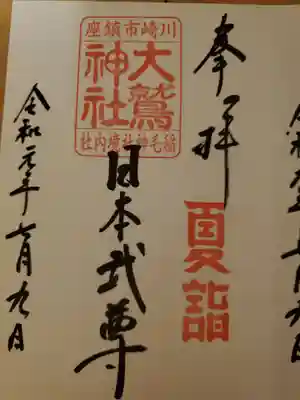 奉拝
夏詣
川崎市鎮座
大鷲神社
稲毛神社境内社
日本武尊
令和元年七月九日